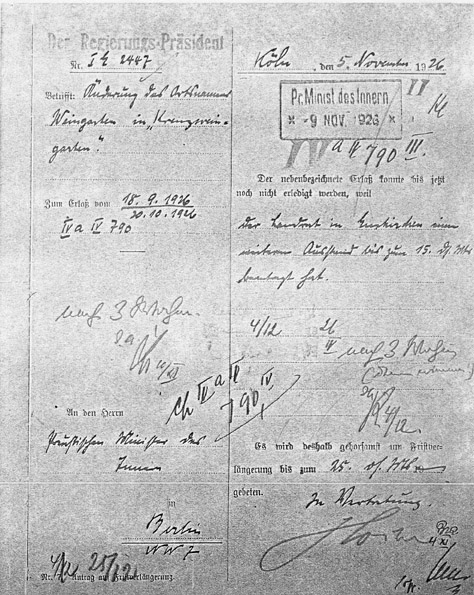 Der Regierungs-Präsident
Nr. I h 2447
Betrifft: Änderung des Ortsnamens
Weingarten in „Kreuzwein-
garten".
Zum Erlaß vom 18. 9. 1926
20. 10. 1926
IV a IV 790
nach 3 Wochen.
An den Herrn
Preußischen Minister des
Innern
in
Berlin
NW 7
Nr. Antrag auf Fristverlängerung.
Köln, den 5. November 1926
Pr. Minist. des Innern
* -9 NOV. 1926 *
IV a IV 790 III.
Der nebenbezeichnete Erlaß konnte bis jetzt
noch nicht erledigt werden, weil
der Landrat in Euskirchen einen
weiteren Ausstand bis zum 15. ds. Mts
beantragt hat.
4/12 26
nach 3 Wochen
IV a IV
790 IV.
Es wird deshalb gehorsamst um Fristver-
längerung bis zum 25. ds. Mts
gebeten.
In Vertretung.